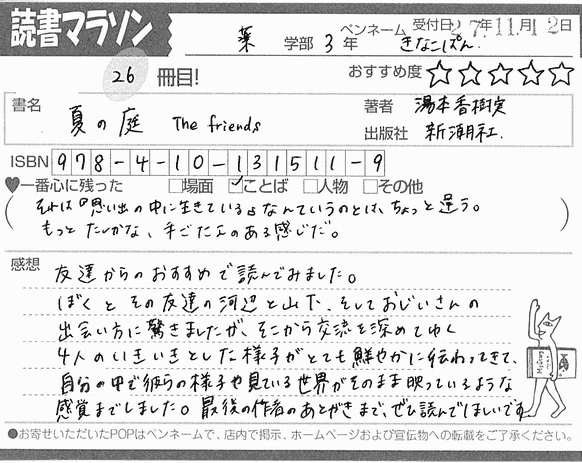 読書マラソン
ペンネーム 受付日27年11月12日
薬 学部 3 年 きなこぱん.
26 冊目! おすすめ度 ☆☆☆☆☆
書名 夏の庭 The friends
著者 湯本香樹実
出版社 新潮社.
ISBN 978-4-10-131511-9
♥一番心に残った □場面 ☑ことば □人物 □その他
(それは『思い出の中に生きている』なんていうのとは、ちょっと違う。
もっと たしかな、手ごたえのある感じだ。)
感想
友達からのおすすめで読んでみました。
ぼくと その友達の河辺と山下、そしておじいさんの
出会い方に驚きましたが、そこから交流を深めてゆく
4人のいきいきとした様子がとても鮮やかに伝わってきて、
自分の中で彼らの様子や見ている世界がそのまま映っているような
感覚までしました。最後の作者のあとがきまで、ぜひ読んでほしいです
●お寄せいただいたPOPはペンネームで、店内で掲示、ホームページおよび宣伝物への転載をご了承ください。